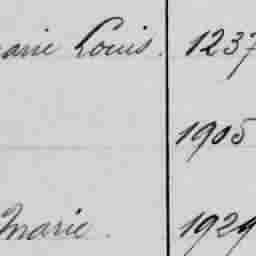 arie Louis. 1237
1905
Marie. 1929